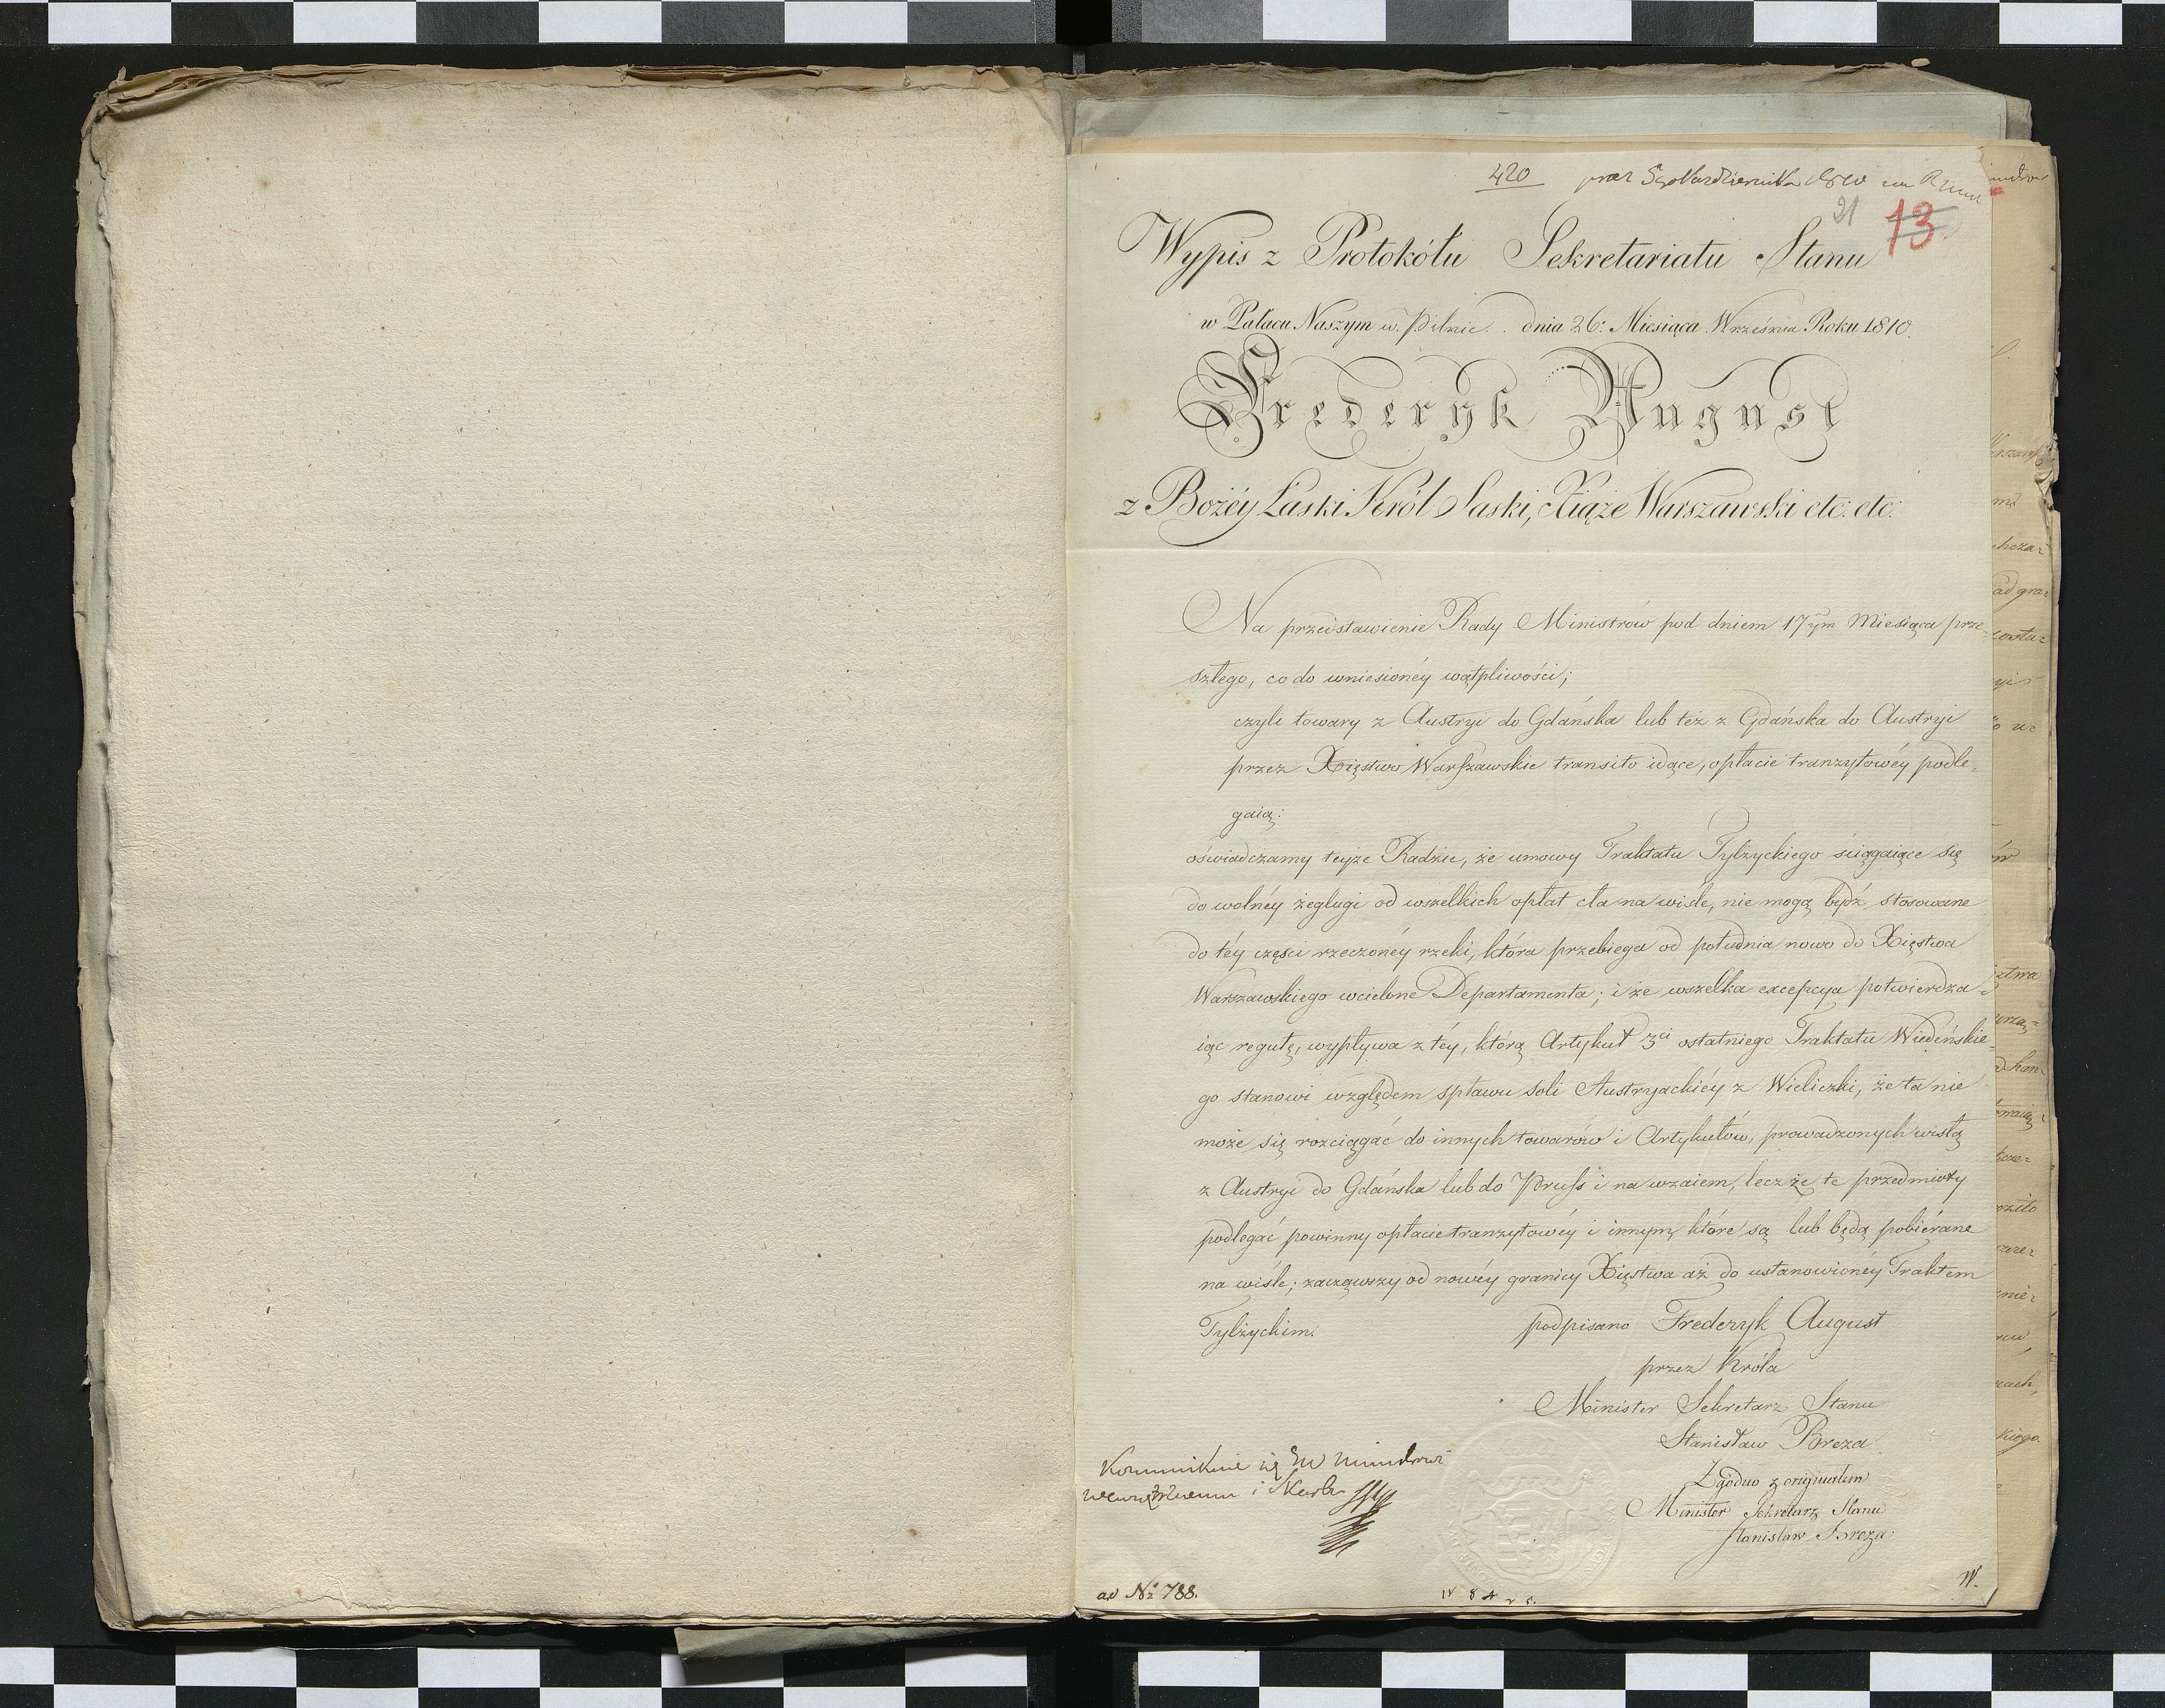 420
21
13.
Wypis z Protokółu Sekretariatu Stanu
w Pałacu Naszym w Pilnic. dnia 26: Miesiąca Września Roku 1810.
Fryderyk August
z Bożéy Łaski Król Saski, Xiąże Warszawski etc: etc:
Na przedstawienie Rady Ministrów pod dniem 17ym Miesiąca prze-
szłego, co do wniesionéy wątpliwości;
czyli towary z Austryi do Gdańska lub też z Gdańska do Austryi
przez Xięstwo Warszawskie transito idące, opłacie tranzytowéy podle-
gaią:
oświadczamy teyże Radzie, że umowy Traktatu Tylżyckiego ściągaiące się
do wolnéy żeglugi od wszelkich opłat cła na wiśle, nie mogą bydź stosowane
do téy części rzeczonéy rzeki, która przebiega od południa nowo do Xięstwa
Warszawskiego wcielone Departamenta; i że wszelka excepcya potwierdza-
iąc regułę, wypływa z téy, którą Artykuł 3ci ostatniego Traktatu Wiedeńskie-
go stanowi względem spławu soli Austryackiéy z Wieliczki, że ta nie
może się rozciągać do innych towarów i Artykułów, prowadzonych wisłą
z Austryi do Gdańska lub do Pruss i na wzaiem, lecz że te przedmioty
podlegać powinny opłacie tranzytowéy i innym, które są lub będą pobiérane
na wiśle; zacząwszy od nowéy granicy Xięstwa aż do ustanowionéy Traktem
Tylżyckim.
podpisano Frederyk August
przez Króla
Minister Sekretarz Stanu
Stanisław Breza
Zgodno z oryginałem
Minister Sekretarz Stanu
Stanisław Breza
i Skarbu
ad No 788.
W.